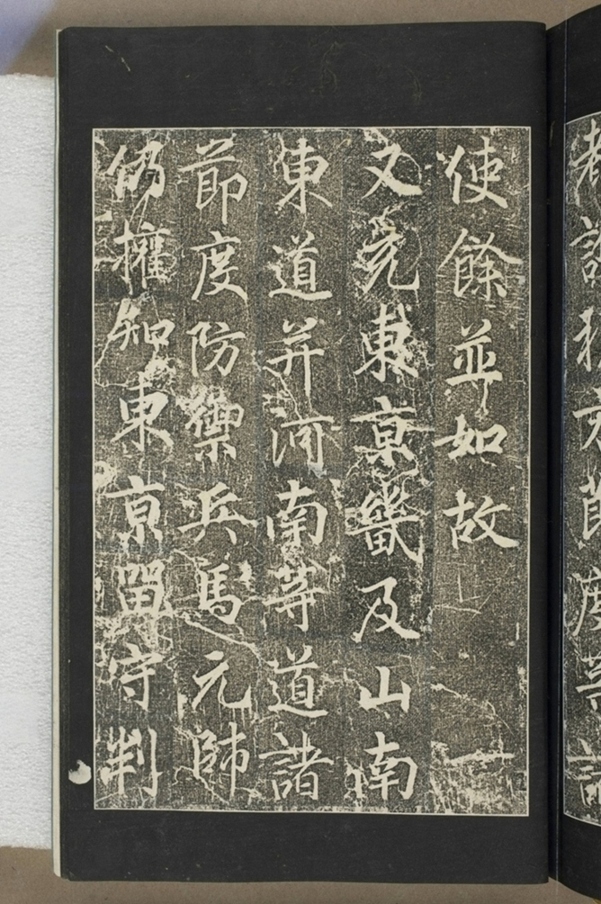 使餘並如故
又充東京畿及山南
東道并河南等道諸
節度防禦兵馬元帥
仍權知東京留守判